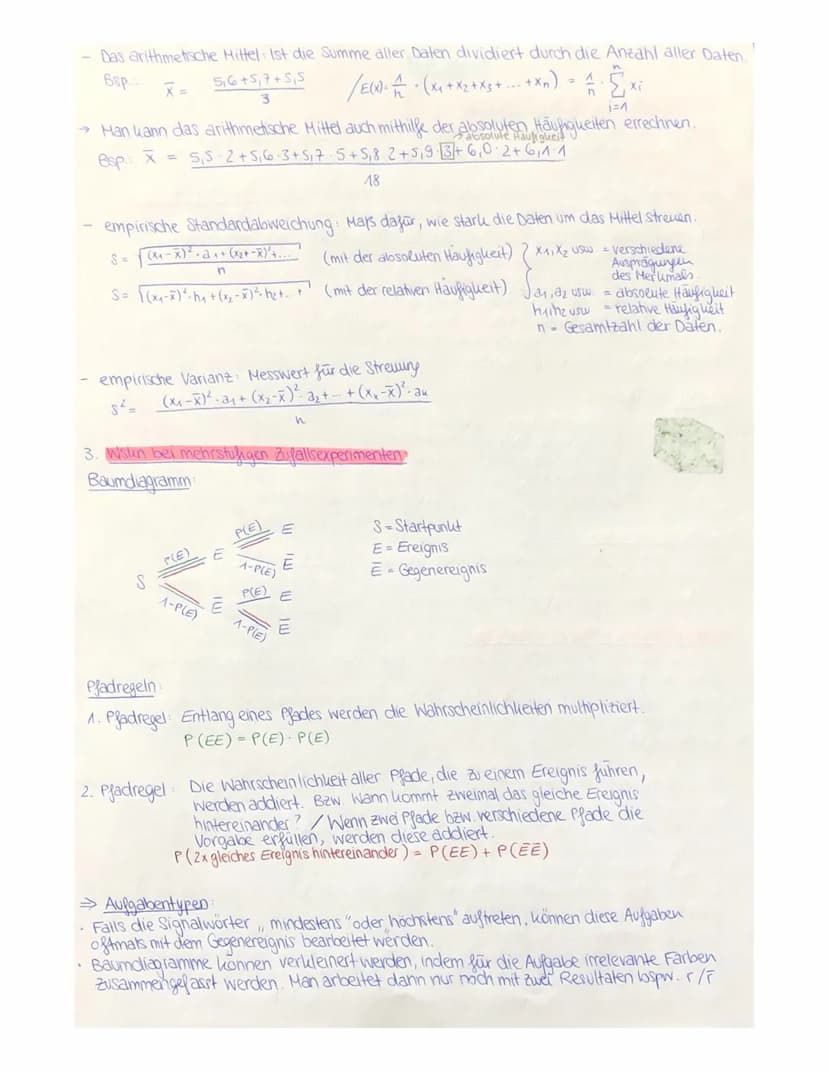 - Das arithmetische Mittel: Ist die Summe aller Daten dividiert durch die Anzahl aller Daten.
Bsp.: x̄ = (5,6+5,7+5,5)/3 / E(x) = 1/n · (x₁+x₂+x₃+...+xₙ) = 1/n · Σ(i=1 bis n) xᵢ
→ Man kann das arithmetische Mittel auch mithilfe der absoluten Häufigkeiten errechnen.
→ absolute Häufigkeit
Bsp.: x̄ = (5,5·2+5,6·3+5,7·5+5,8·2+5,9·3+6,0·2+6,1·1)/18
- empirische Standardabweichung: Maß dafür, wie stark die Daten um das Mittel streuen.
S = √((x₁-x̄)²·a₁+(x₂-x̄)²+.../n) (mit der absoluten Häufigkeit)
S = √((x₁-x̄)²·h₁+(x₂-x̄)²·h₂+...+) (mit der relativen Häufigkeit)
x₁,x₂ usw = verschiedene
Ausprägungen
des Merkmals
a₁,a₂ usw. = absolute Häufigkeit
h₁,h₂ usw = relative Häufigkeit
n = Gesamtzahl der Daten.
- empirische Varianz: Messwert für die Streuung
s² = ((x₁-x̄)²·a₁+(x₂-x̄)²·a₂+...+(xₖ-x̄)²·aₖ)/n
3. Wslkn bei mehrstufigen Zufallsexperimenten
Baumdiagramm:
P(E) E
P(E) E
1-P(E) Ē
S
P(E) E
1-P(E) Ē
1-P(E) Ē
S = Startpunkt
E = Ereignis
Ē = Gegenereignis
Pfadregeln:
1. Pfadregel: Entlang eines Pfades werden die Wahrscheinlichkeiten multipliziert.
P(EE) = P(E) · P(E)
2. Pfadregel: Die Wahrscheinlichkeit aller Pfade, die zu einem Ereignis führen,
werden addiert. Bzw. Wann kommt zweimal das gleiche Ereignis
hintereinander? / Wenn zwei Pfade bzw. verschiedene Pfade die
Vorgabe erfüllen, werden diese addiert.
P(2x gleiches Ereignis hintereinander) = P(EE) + P(ĒĒ)
⇒ Aufgabentypen:
· Falls die Signalwörter „mindestens" oder „höchstens" auftreten, können diese Aufgaben
oftmals mit dem Gegenereignis bearbeitet werden.
· Baumdiagramme können verkleinert werden, indem für die Aufgabe irrelevante Farben
zusammengefasst werden. Man arbeitet dann nur noch mit zwei Resultaten bspw. r/r̄